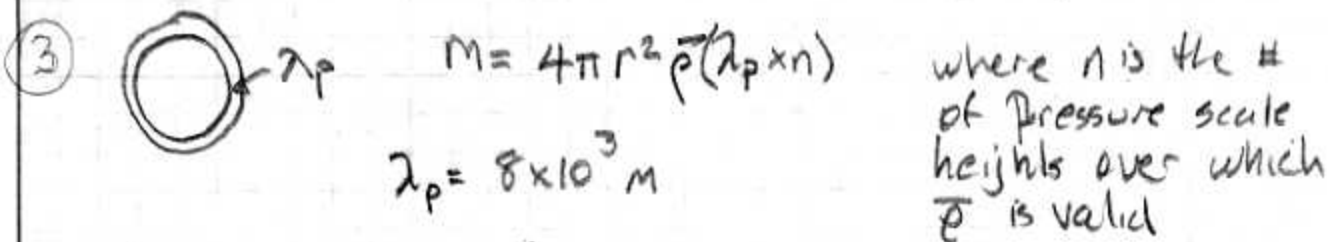 3
λp
M = 4π r² ρ̄ (λp × n)
λp = 8×10³ m
where n is the #
of Pressure scale
heights over which
ρ̄ is valid